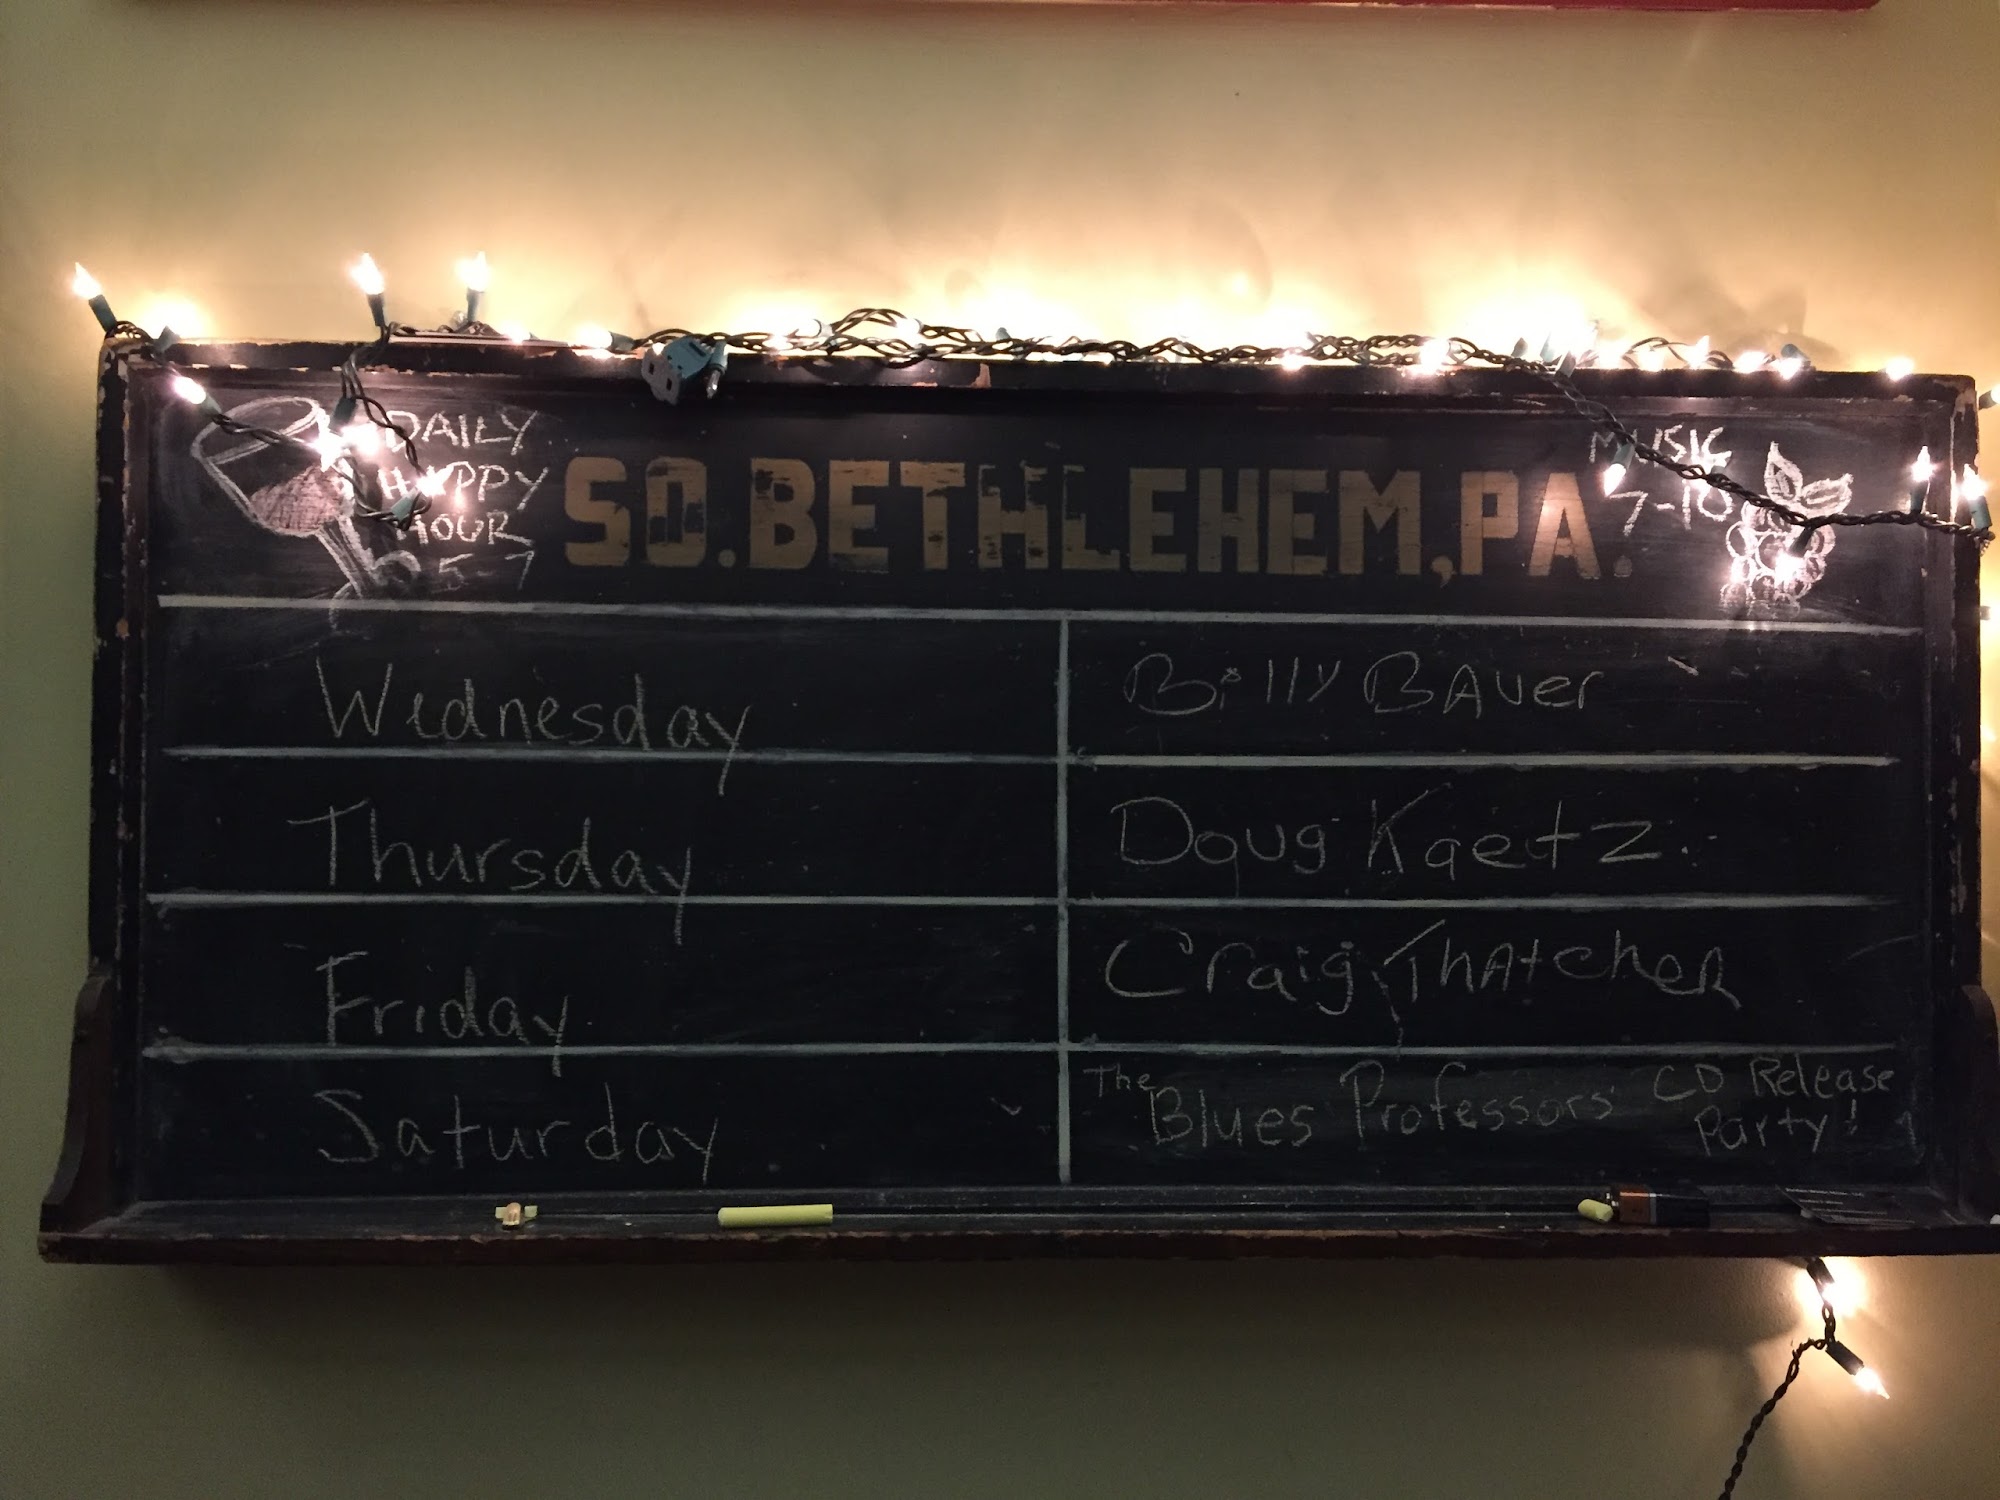 DAILY
HAPPY
HOUR
5-7
SO. BETHLEHEM, PA.
MUSIC
7-10
Wednesday
Billy BAuer
Thursday
Doug Kaetz
Friday
Craig THAtcheR
Saturday
The Blues Professors' CD Release
Party!